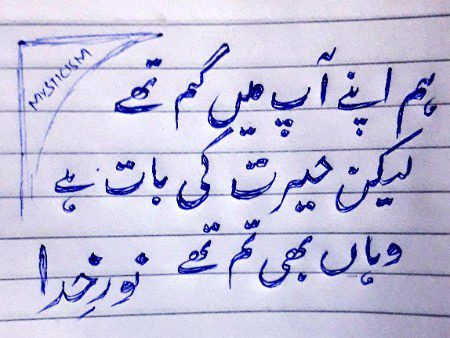 MYSTICISM
ہم اپنے آپ میں گم تھے
لیکن حیرت کی بات ہے
وہاں بھی تم تھے نورِ خدا